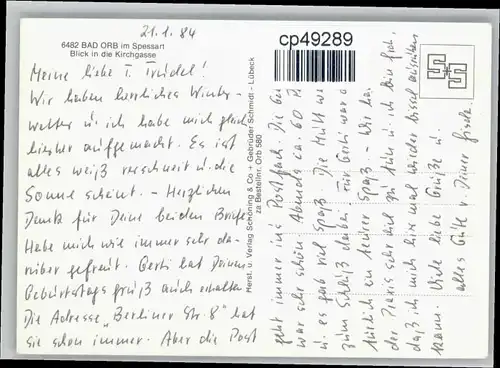 21.1.84
cp49289
6482 BAD ORB im Spessart
Blick in die Kirchgasse
Meine liebe T. Trudel!
Wir haben herrliches Winter-
wetter u. ich habe mich gleich
hierher aufgemacht. Es ist
alles weiß verschneit u. die
Sonne scheint. - Herzlichen
Dank für Deine beiden Briefe
Habe mich wie immer sehr da-
rüber gefreut. Gerti hat Deinen
Geburtstagsgruß auch erhalten
Die Adresse „Berliner Str. 8" hat
sie schon immer. Aber die Post
Herst. u. Verlag Schöning & Co · Gebrüder Schmidt - Lübeck
za Bestellnr. Orb 580
geht immer ins Postfach. Die
war sehr schön. Abends ca. 60 P.
u. es gab viel Spaß. Die
zum Schluß dabei. Für Gerti war
ein teurer Spaß. - Wir
der Praxis sehr viel zu tun u. ich bin froh,
daß ich mich hier mal wieder bissel ausruhen
kann. Viele liebe Grüße u.
alles Gute v. Deiner Gisela.